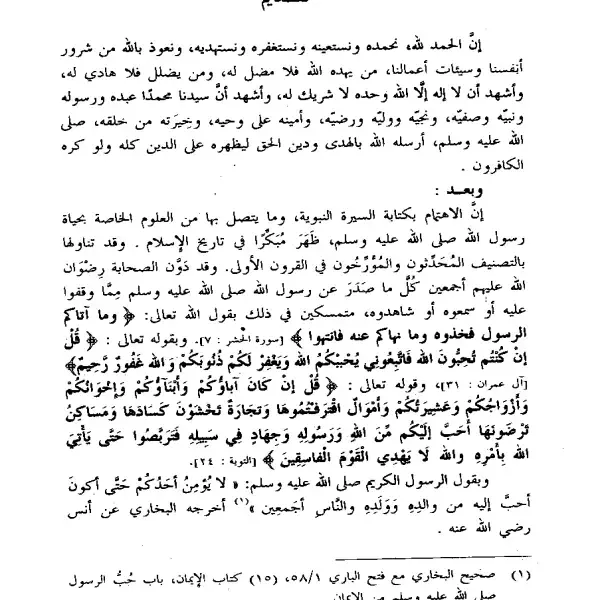 تقديم
إنَّ الحمد لله، نحمده ونستعينه ونستغفره ونستهديه، ونعوذ بالله من شرور
أنفسنا وسيئات أعمالنا، من يهده الله فلا مضل له، ومن يضلل فلا هادي له،
وأشهد أن لا إله إلَّا الله وحده لا شريك له، وأشهد أنَّ سيدنا محمدًا عبده ورسوله
ونبيّه وصفيّه، ونجيّه ووليّه ورضيّه، وأمينه على وحيه، وخِيرَته من خلقه، صلى
الله عليه وسلم، أرسله الله بالهدى ودين الحق ليظهره على الدين كله ولو كره
الكافرون .
وبعـد :
إنَّ الاهتمام بكتابة السيرة النبوية، وما يتصل بها من العلوم الخاصة بحياة
رسول الله صلى الله عليه وسلم، ظَهَرَ مُبَكرًا في تاريخ الإسلام . وقد تناولها
بالتصنيف المُحَدِّثون والمُؤرِّخون في القرون الأولى. وقد دَوَّن الصحابة رِضْوَان
الله عليهم أجمعين كُلَّ ما صَدَرَ عن رسول الله صلى الله عليه وسلم مِمَّا وقفوا
عليه أو سمعوه أو شاهدوه، متمسكين في ذلك بقول الله تعالى: ﴿ وما آتاكم
الرسول فخذوه وما نهاكم عنه فانتهوا ﴾ [سورة الحشر : ٧]. وبقوله تعالى : ﴿ قُلْ
إنْ كُنْتُم تُحِبُّونَ الله فَاتَّبِعُوني يُحْبِبْكُمُ الله وَيَغْفِرْ لَكُمْ ذُنُوبَكُمْ وَالله غَفُورٌ رَّحِيمٌ﴾
[آل عمران : ٣١]، وقوله تعالى : ﴿ قُلْ إنْ كَانَ آبَاؤُكُمْ وَأَبْنَاؤُكُمْ وَإخْوَانُكُمْ
وَأَزْوَاجُكُمْ وَعَشِيرَتُكُمْ وَأَمْوَالٌ اقْتَرَفْتُمُوهَا وَتِجَارَةٌ تَخْشَوْنَ كَسَادَهَا وَمَسَاكِنُ
تَرْضَوْنَهَا أَحَبَّ إلَيْكُم مِّنَ اللهِ وَرَسُولِهِ وَجِهَادٍ فِي سَبِيلِهِ فَتَرَبَّصُوا حَتَّى يَأْتِيَ
اللهُ بِأَمْرِهِ والله لَا يَهْدِي الْقَوْمَ الْفَاسِقِينَ ﴾ [التوبة : ٢٤].
وبقول الرسول الكريم صلى الله عليه وسلم: « لا يُؤمِنُ أحَدُكُمْ حَتَّى أكون
أحبَّ إليه من والدِهِ وَوَلَدِهِ والنَّاسِ أجمَعين »(١) أخرجه البخاري عن أنس
رضي الله عنه .
(١) صحيح البخاري مع فتح الباري ٥٨/١، (١٥) كتاب الإيمان، باب حُبُّ الرسول
صلى الله عليه وسلم من الإيمان